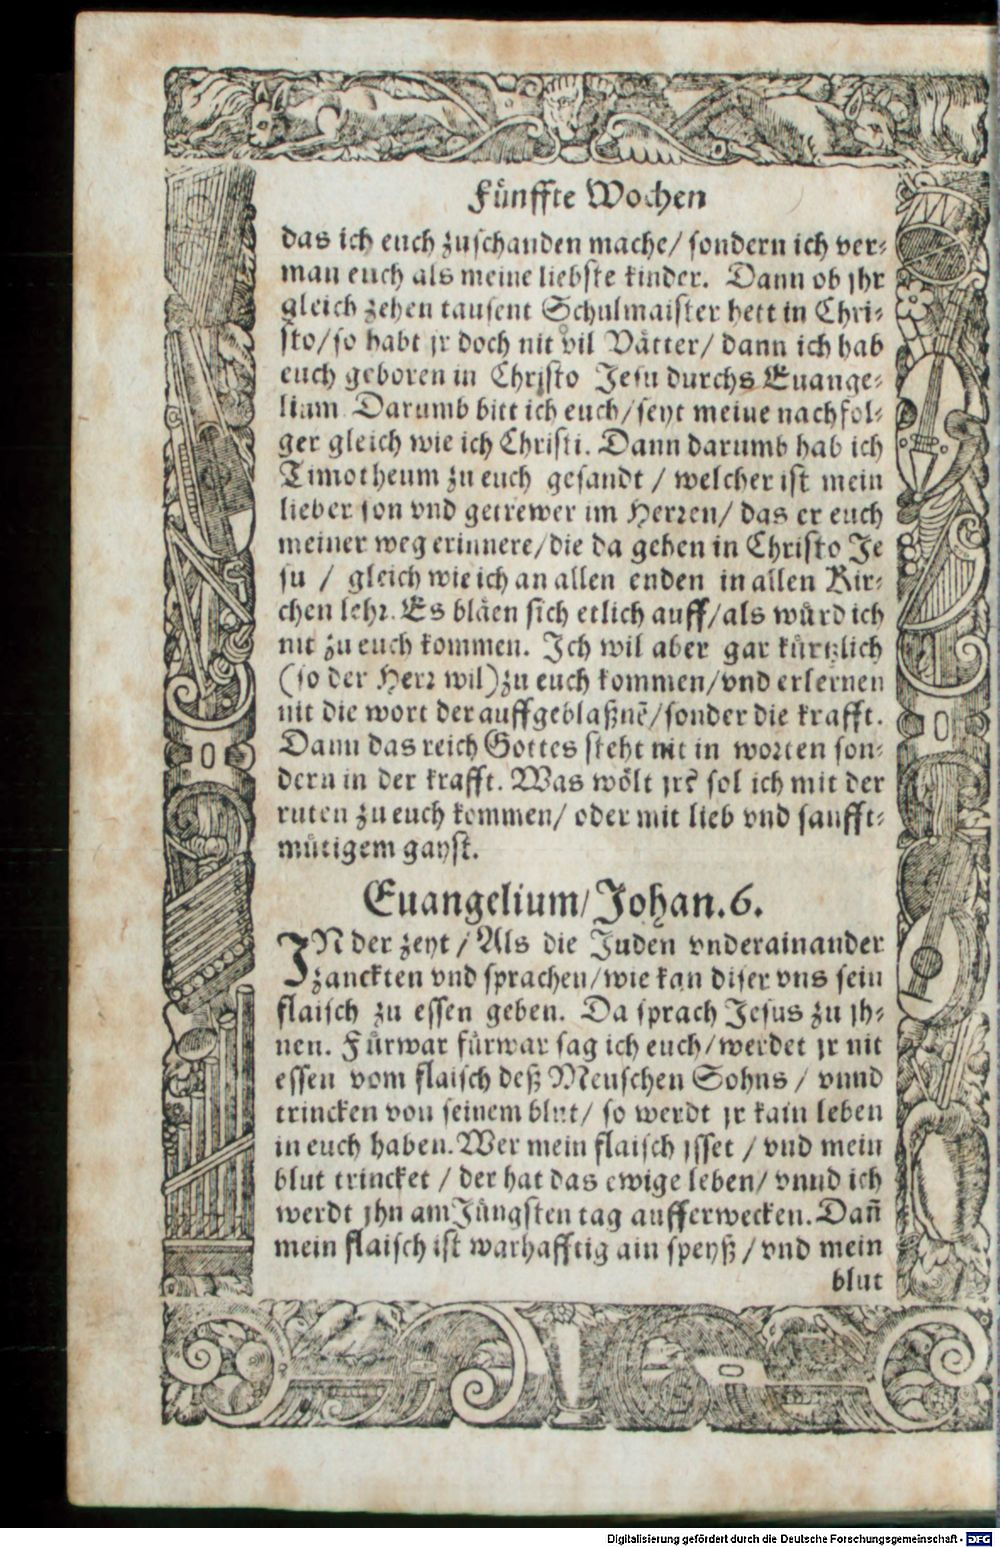 Fünffte Wochen
das ich euch zuschanden mache/ sondern ich ver-
man euch als meine liebste kinder. Dann ob jhr
gleich zehen tausent Schulmaister hett in Chri-
sto/so habt jr doch nit vil Vätter/ dann ich hab
euch geboren in Christo Jesu durchs Euange-
lium Darumb bitt ich euch/seyt meine nachfol-
ger gleich wie ich Christi. Dann darumb hab ich
Timotheum zu euch gesandt / welcher ist mein
lieber son vnd getrewer im Herren/ das er euch
meiner weg erinnere/die da gehen in Christo Je
su / gleich wie ich an allen enden in allen Kir-
chen lehr. Es bläen sich etlich auff/als würd ich
nit zu euch kommen. Ich wil aber gar kürtzlich
(so der Herr wil)zu euch kommen/vnd erlernen
nit die wort der auffgeblaßnē/sonder die krafft.
Dann das reich Gottes steht nit in worten son-
dern in der krafft. Was wölt jr? sol ich mit der
ruten zu euch kommen/ oder mit lieb vnd saufft-
mütigem gayst.
Euangelium/ Johan. 6.
JN der zeyt / Als die Juden vnderainander
zanckten vnd sprachen/wie kan diser vns sein
flaisch zu essen geben. Da sprach Jesus zu jh-
nen. Fürwar fürwar sag ich euch/werdet jr nit
essen vom flaisch deß Menschen Sohns / vnnd
trincken von seinem blut/ so werdt jr kain leben
in euch haben. Wer mein flaisch jsset / vnd mein
blut trincket / der hat das ewige leben/ vnnd ich
werdt jhn am Jüngsten tag aufferwecken. Dañ
mein flaisch ist warhafftig ain speyß / vnd mein
blut
Digitalisierung gefördert durch die Deutsche Forschungsgemeinschaft - DFG